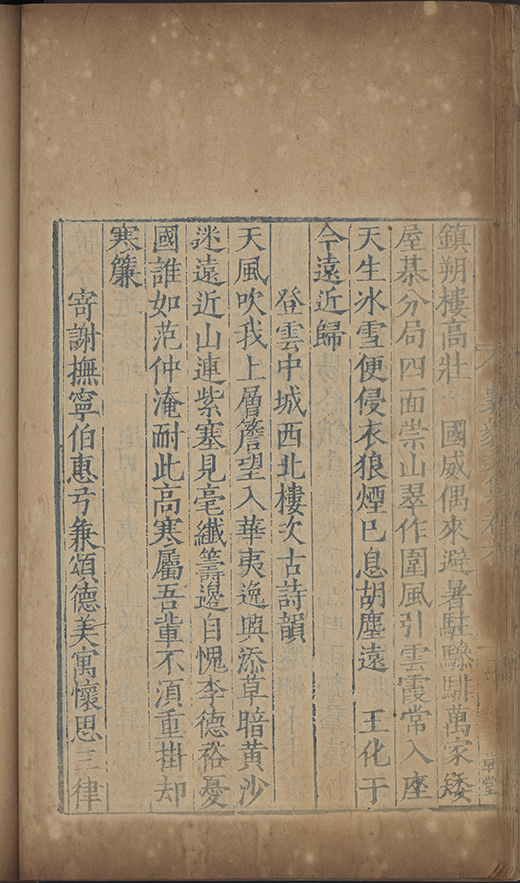 鎮朔樓高壯　國威偶來避暑駐驂騑萬家矮
屋棊分局四面崇山翠作圍風引雲霞常入座
天生冰雪便侵衣狼煙已息胡塵遠　王化于
今遠近歸
登雲中城西北樓次古詩韻
天風吹我上層簷望入華夷逸興添草暗黃沙
迷遠近山連紫塞見毫纖籌邊自愧李德裕憂
國誰如范仲淹耐此高寒屬吾輩不須重掛却
寒簾
寄謝撫寧伯惠弓兼頌德美寓懷思三律
草堂